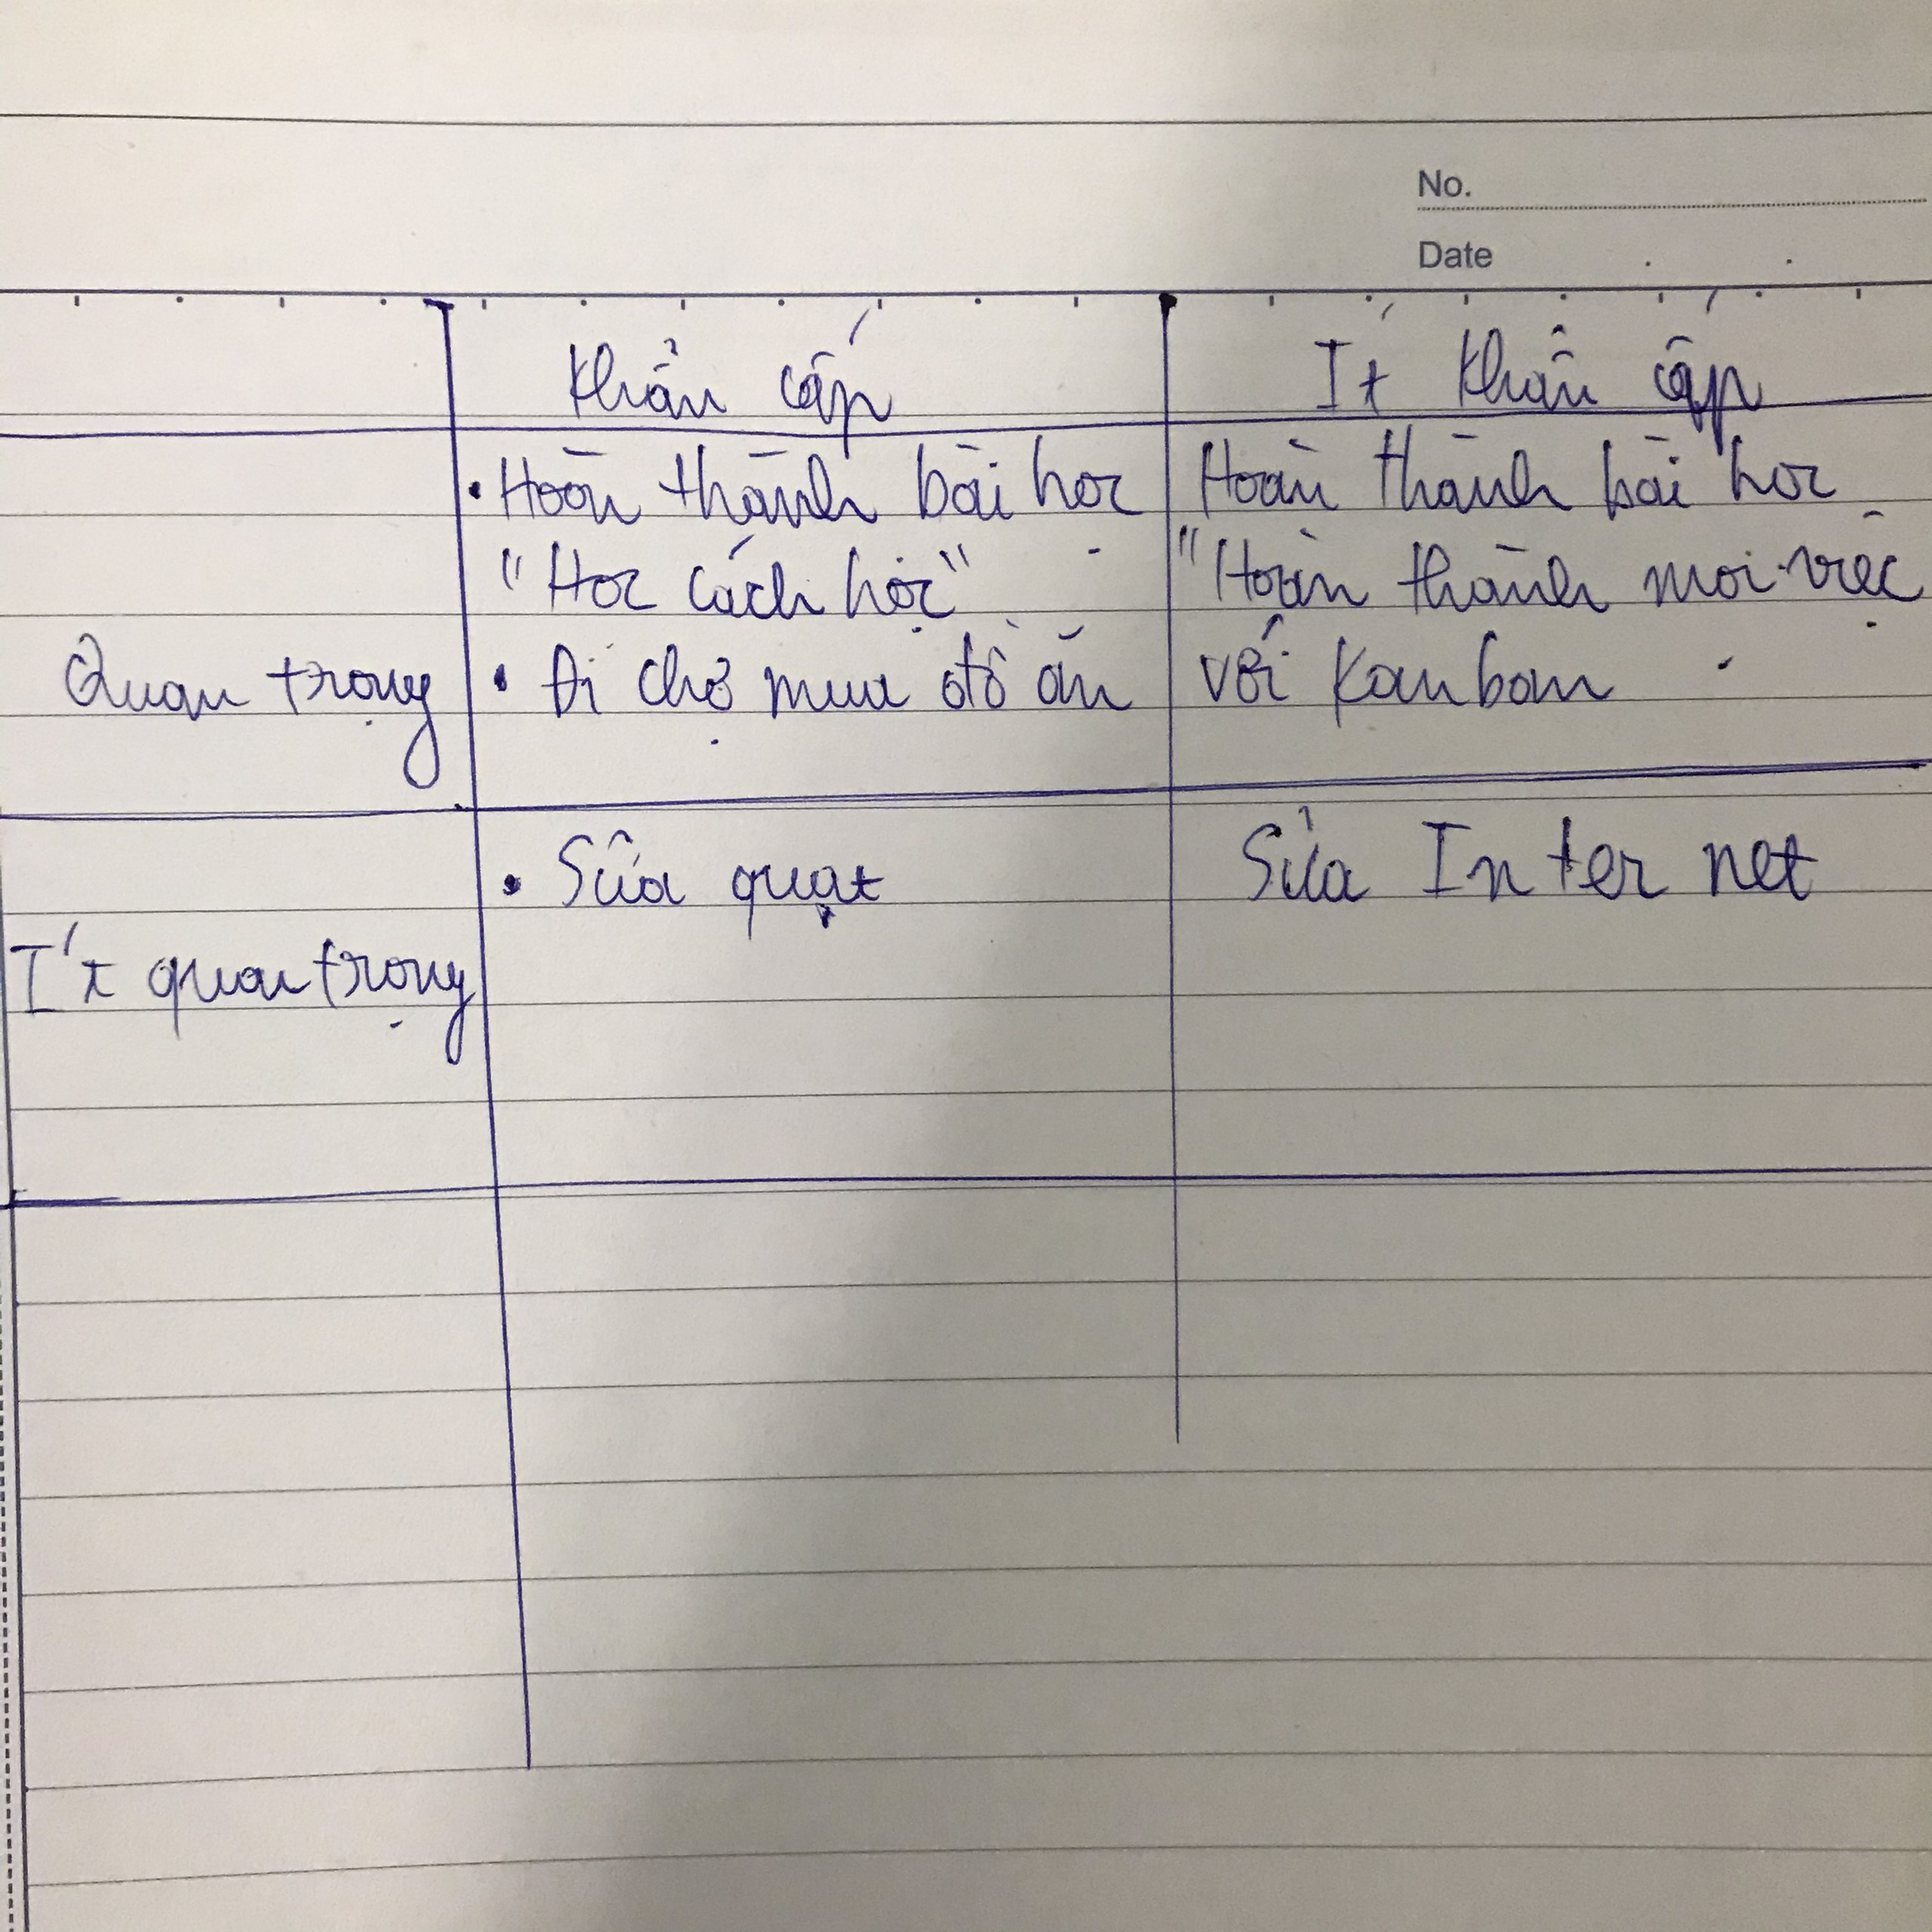 No.
Date
Khẩn cấp
Ít khẩn cấp
• Hoàn thành bài học
"Học cách học"
• Đi chợ mua đồ ăn
Hoàn thành bài học
"Hoàn thành mọi việc
với Kanban
Quan trọng
• Sửa quạt
Sửa Internet
Ít quan trọng